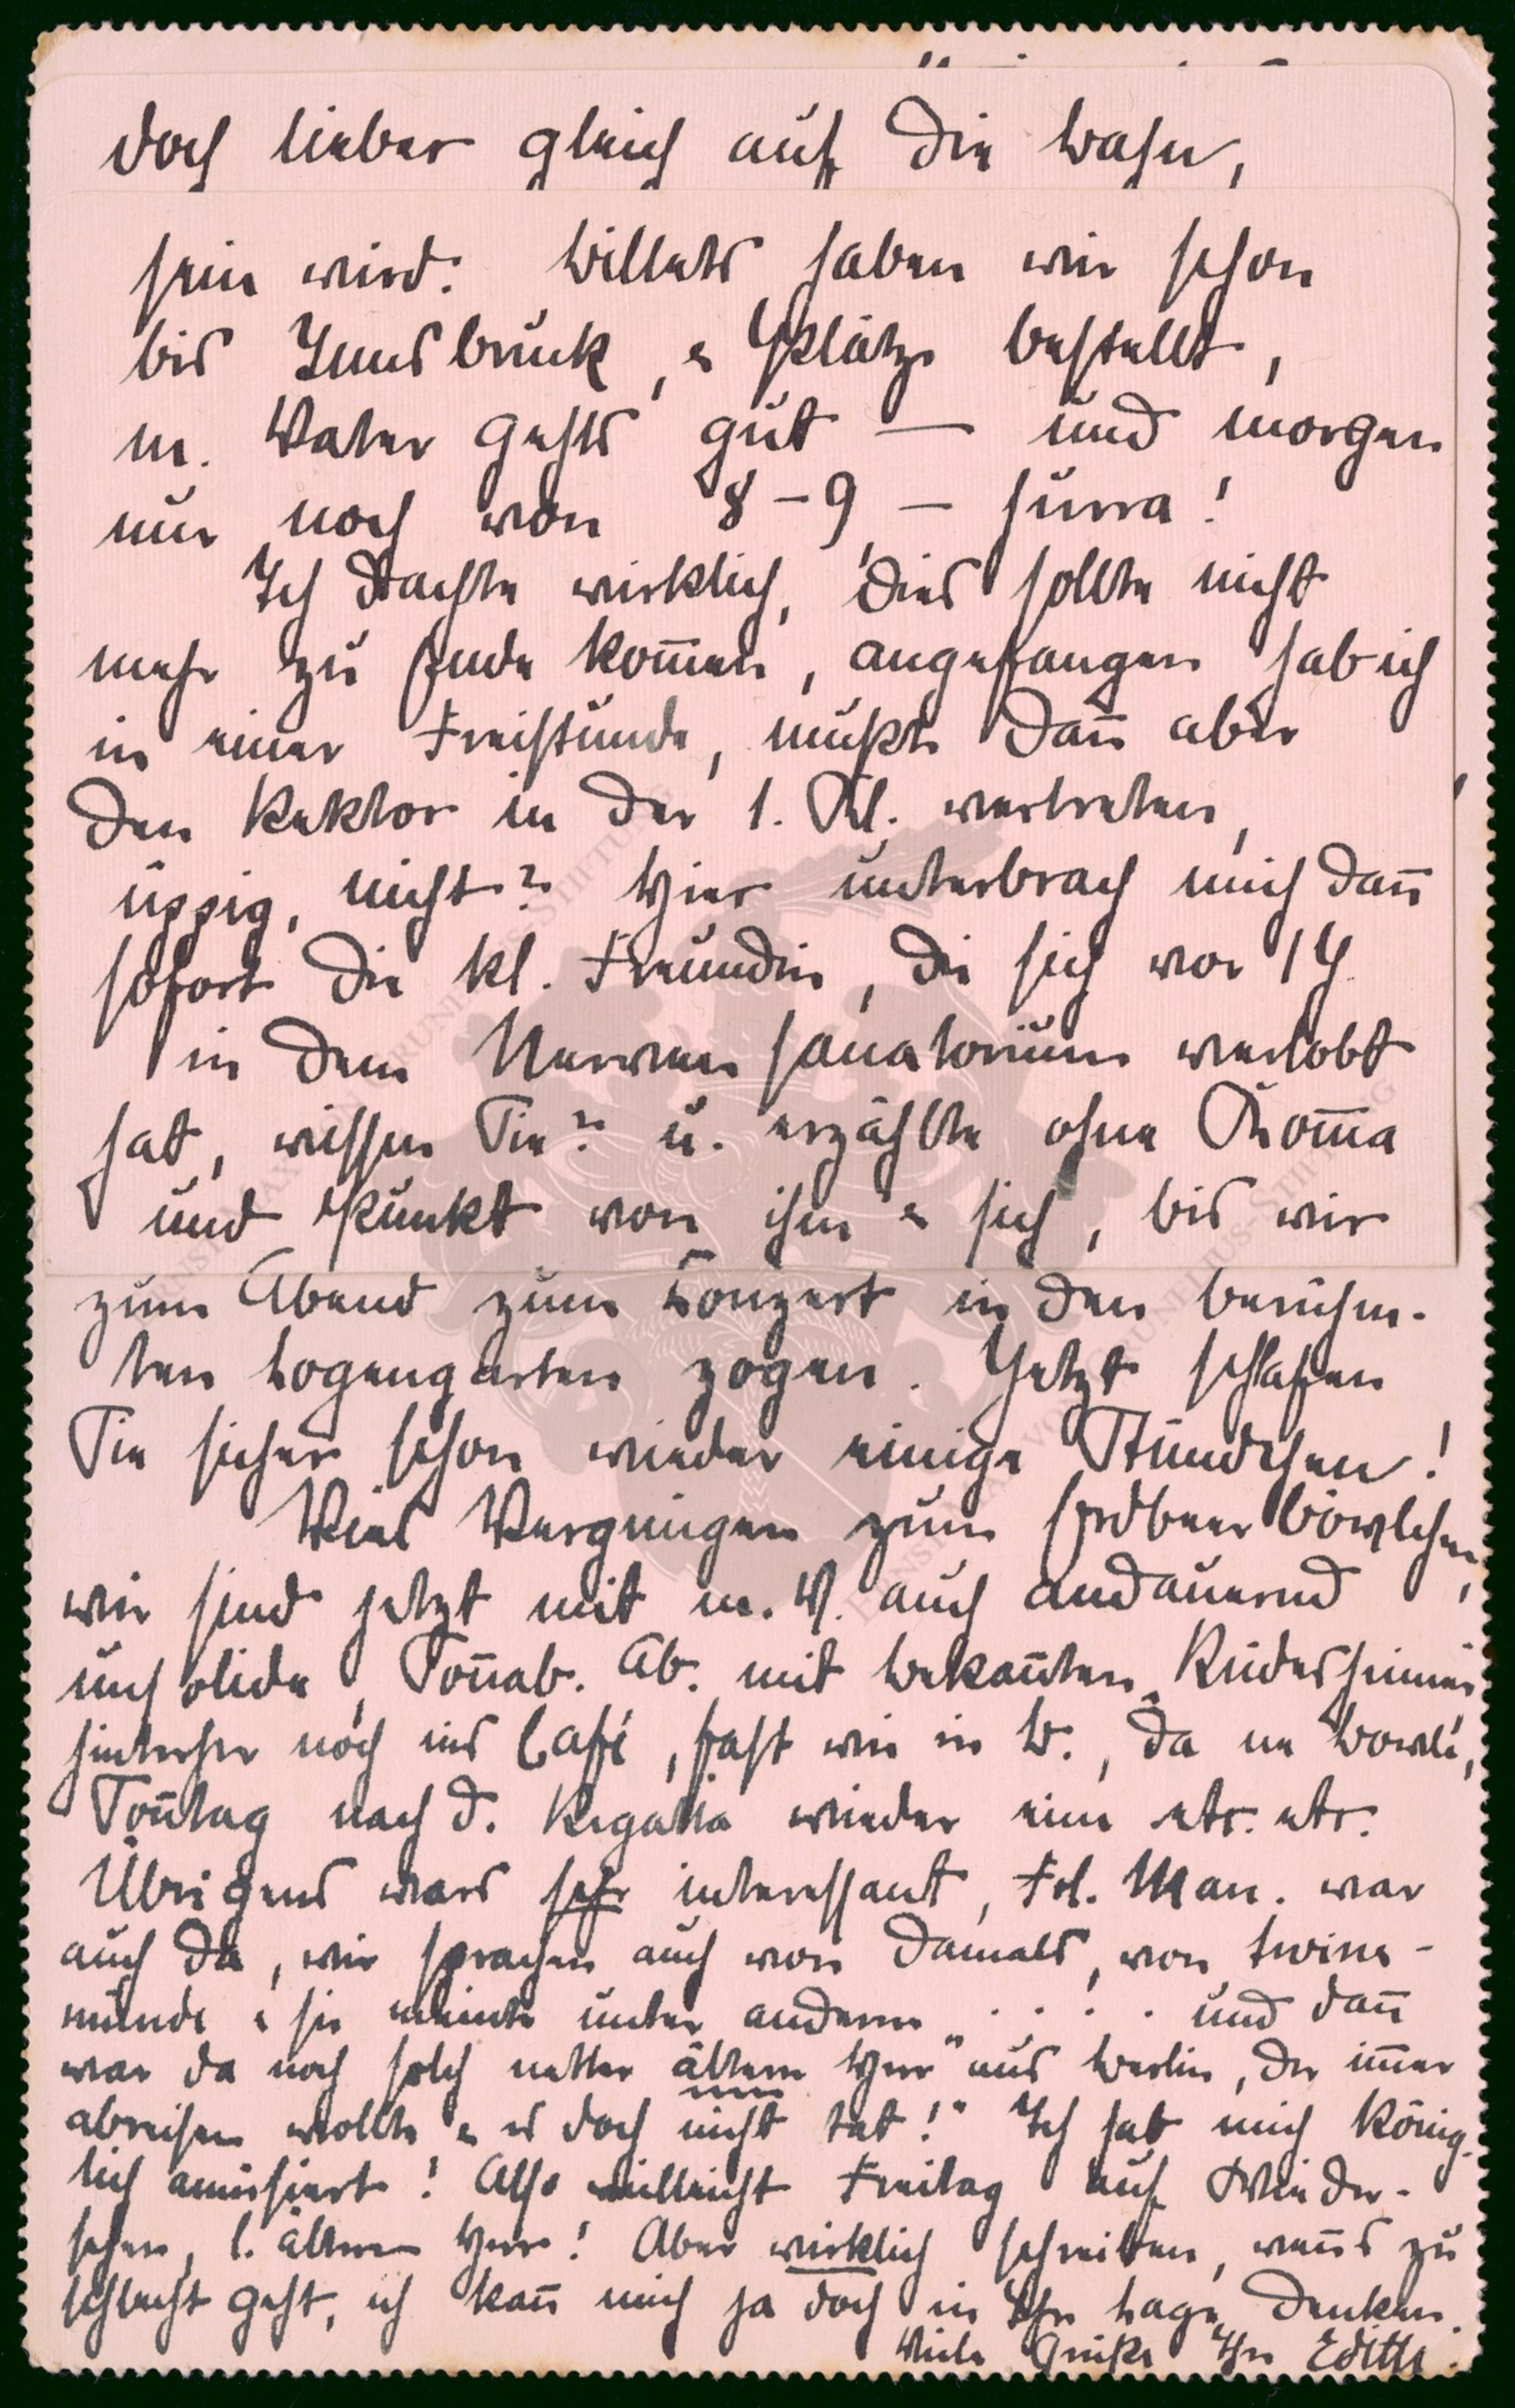 doch lieber gleich auf die Bahn,
sein wird. Billets haben wir schon
bis Innsbruck, & Plätze bestellt,
m. Vater gehts gut — und morgen
nur noch von 8–9, — hurra!
Ich dachte wirklich, dies sollte nicht
mehr zu Ende kom̄en, angefangen hab ich
in einer Freistunde, mußte dan̄ aber
den Rektor in der 1. Kl. vertreten,
üppig, nicht? Hier unterbrach mich dan̄
sofort die kl. Freundin, die sich vor 1 J.
in dem Nervensanatorium verlobt
hat, wissen Sie? u. erzählte ohne Kom̄a
und Punkt von ihm & sich, bis wir
zum Abend zum Konzert in den berühm-
ten Logengarten zogen. Jetzt schlafen
Sie sicher schon wieder einige Stündchen!
Viel Vergnügen zum Erdbeerböwlchen,
wir sind jetzt mit m. V. auch andauernd
unsolide, Son̄ab. Ab. mit Bekan̄ten Rüdesheimer,
hinterher noch ins Café, fast wie in B., da ne Bowle,
Son̄tag nach d. Regatta wieder eine etc. etc.
Übrigens wars sehr interessant, Frl. Man. war
auch da, wir sprachen auch von damals, von Swine-
münde & sie meinte unter anderm „. . . . und dan̄
war da noch solch netter älterer Herr aus Berlin, der im̄er
abreisen wollte & es doch nie tat!" Ich hab mich könig-
lich amüsiert! Also vielleicht Freitag auf Wieder-
sehen, l. älterer Herr! Aber wirklich schreiben, wen̄s zu
schlecht geht, ich kan̄ mich ja doch in Ihre Lage denken.
Viele Grüße Ihre Edith.